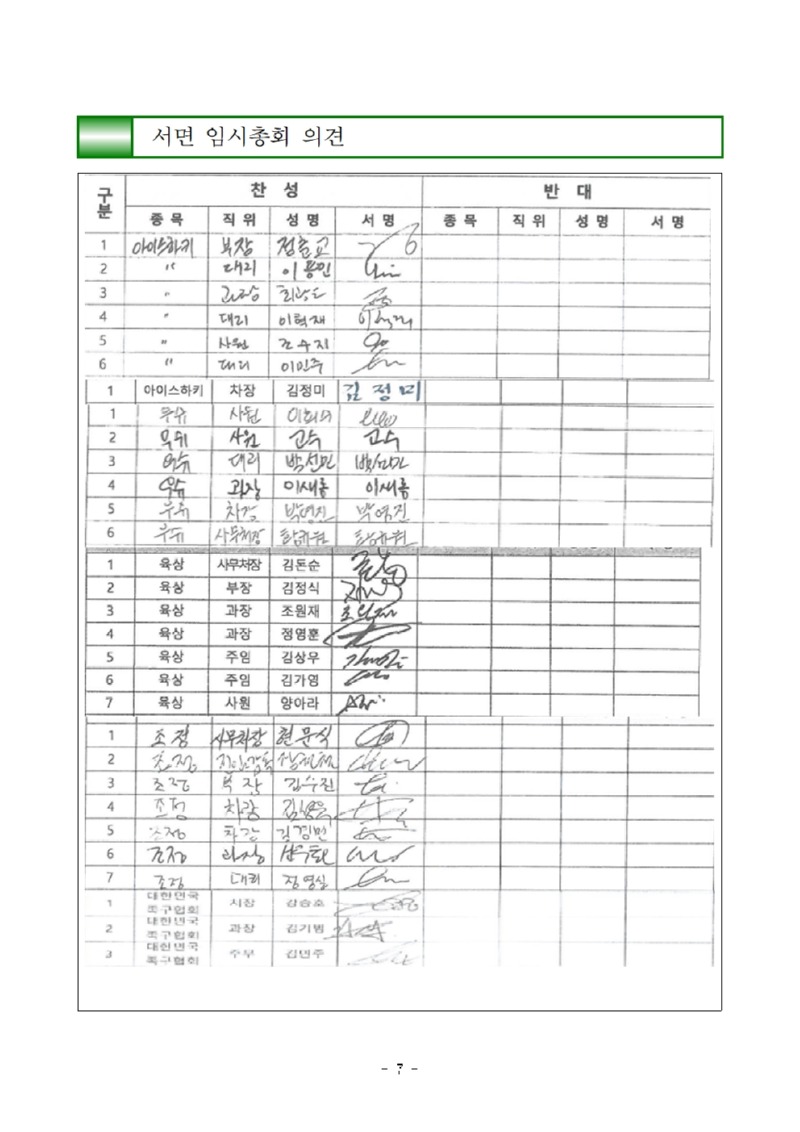 서면 임시총회 의견
구분 찬 성 반 대
종 목 직 위 성 명 서 명 종 목 직 위 성 명 서 명
1 아이스하키 부장
2 〃 대리 이용민
3 〃 과장
4 〃 대리 이혁재 이혁재
5 〃 사원 조수지
6 〃 대리 이민주
1 아이스하키 차장 김정미 김정미
1 우슈 사원
2 우슈 사원 고수 고수
3 우슈 대리 백선민 백선민
4 우슈 과장 이새롬 이새롬
5 우슈 차장 박영진 박영진
6 우슈 사무처장
1 육상 사무처장 김돈순
2 육상 부장 김정식
3 육상 과장 조원재 조원재
4 육상 과장 정영훈
5 육상 주임 김상우
6 육상 주임 김가영
7 육상 사원 양아라
1 조정 사무처장 현문식
2 조정
3 조정 부장 김수진
4 조정 차장
5 조정 차장 김경민
6 조정 과장
7 조정 대리 정영실
1 대한민국 족구협회 강승호
2 대한민국 족구협회 과장 김기범
3 대한민국 족구협회 주무 김민주
- 7 -